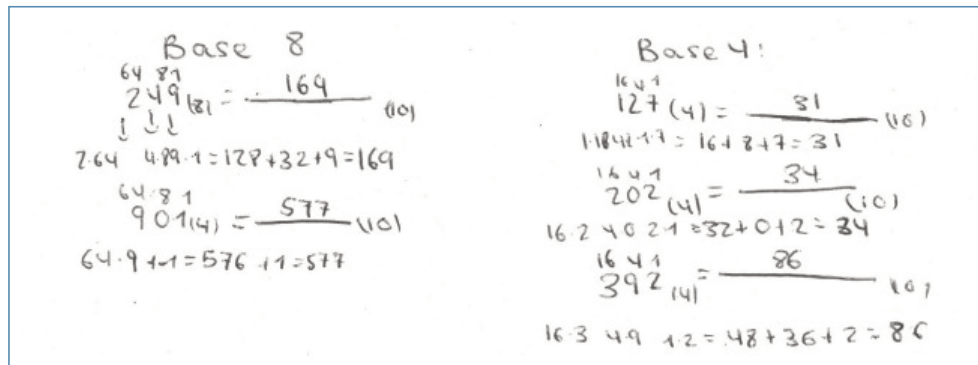 Base 8
64 8 1
249 (8) = 169 (10)
2·64 4·8 9·1 = 128 + 32 + 9 = 169
64·8 1
901 (4) = 577 (10)
64·9 + 1 = 576 + 1 = 577
Base 4:
16 4 1
127 (4) = 31 (10)
1·16 4·2 1·7 = 16 + 8 + 7 = 31
16 4 1
202 (4) = 34 (10)
16·2 4·0 2·1 = 32 + 0 + 2 = 34
16 4 1
392 (4) = 86 (10)
16·3 4·9 1·2 = 48 + 36 + 2 = 86